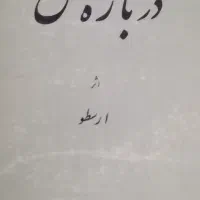 درباره
اثر
ارسطو